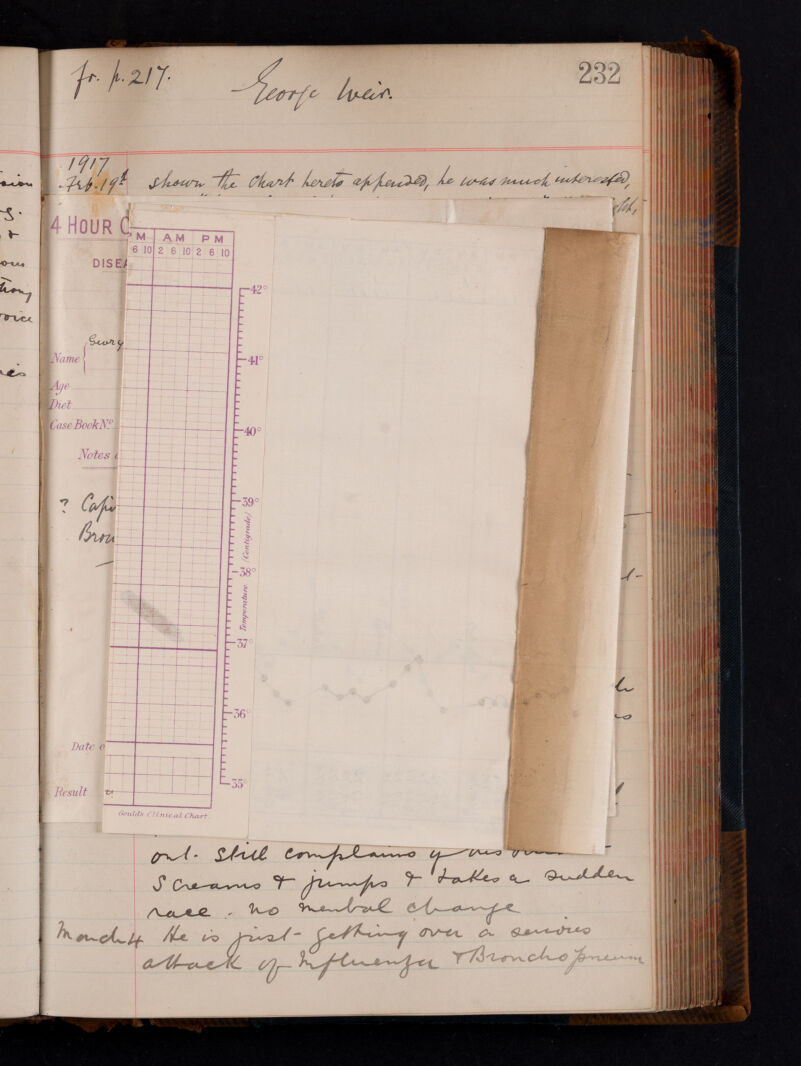 fr. p. 217.
George Weir.
232
1917
Feb. 19th shown the Chart hereto appended, he was much interested,
4 HOUR C
M AM PM
6 10 2 6 10 2 6 10
DISEA
42°
41°
40°
39°
38°
37°
36°
35°
Temperature (Centigrade)
Name
Georg
Age
Diet
Case Book No.
Notes
? Capi
Bron
Date o
Result
Goulds Clinical Chart.
out. Still complains of his
Screams & jumps & takes a sudden
race. No mental change
March 4 He is just getting over a serious
attack of Influenza & Bronchopneum